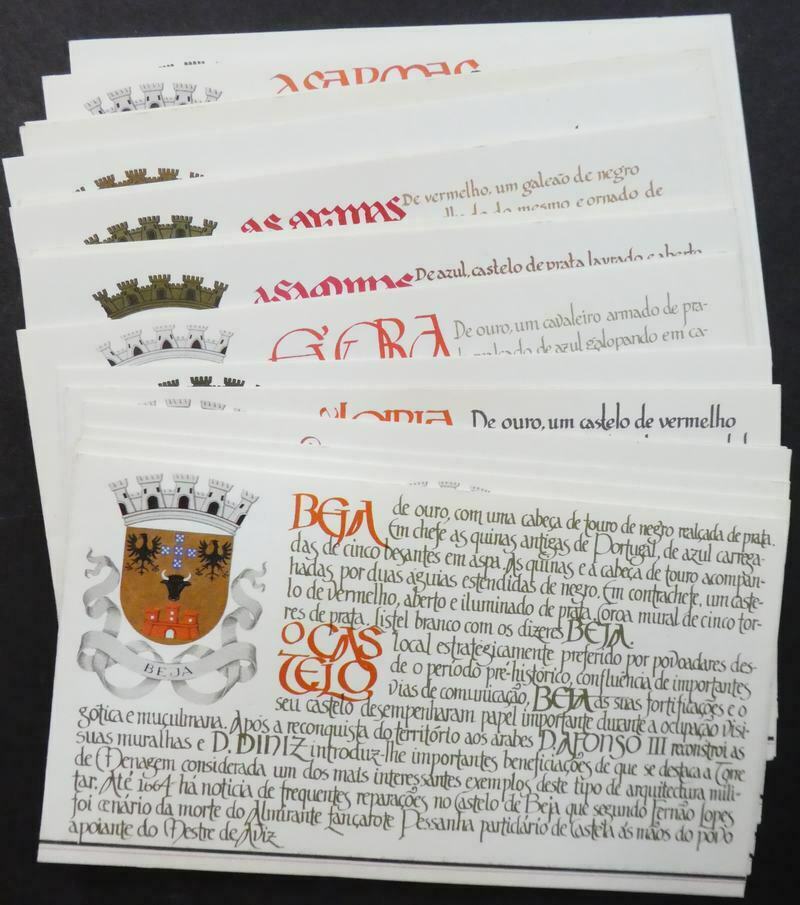 AS ARMAS
De vermelho, um galeão de negro
do mesmo e ornado de
AS ARMAS
De azul, castelo de prata lavrado e aberto
AS ARMAS
De ouro, um cavaleiro armado de pra-
de azul galopando em ca-
De ouro, um castelo de vermelho
BEJA
BEJA de ouro, com uma cabeça de touro de negro realçada de prata.
Em chefe as quinas antigas de Portugal, de azul carrega-
das de cinco besantes em aspa. As quinas e a cabeça de touro acompan-
hadas por duas águias estendidas de negro. Em contrachefe, um caste-
lo de vermelho, aberto e iluminado de prata. Coroa mural de cinco tor-
res de prata. Listel branco com os dizeres BEJA.
O CAS
TELO
local estrategicamente preferido por povoadores des-
de o período pré-histórico, confluência de importantes
vias de comunicação, BEJA as suas fortificações e o
seu castelo desempenharam papel importante durante a ocupação visi-
gótica e muçulmana. Após a reconquista do território aos árabes D. AFONSO III reconstroi as
suas muralhas e D. DINIZ introduz-lhe importantes beneficiações de que se destaca a Torre
de Menagem considerada um dos mais interessantes exemplos deste tipo de arquitectura mili-
tar. Até 1664 há notícia de frequentes reparações no Castelo de Beja que segundo Fernão Lopes
foi cenário da morte do Almirante Lançarote Pessanha particiário de Castela às mãos do povo
apoiante do Mestre de Aviz